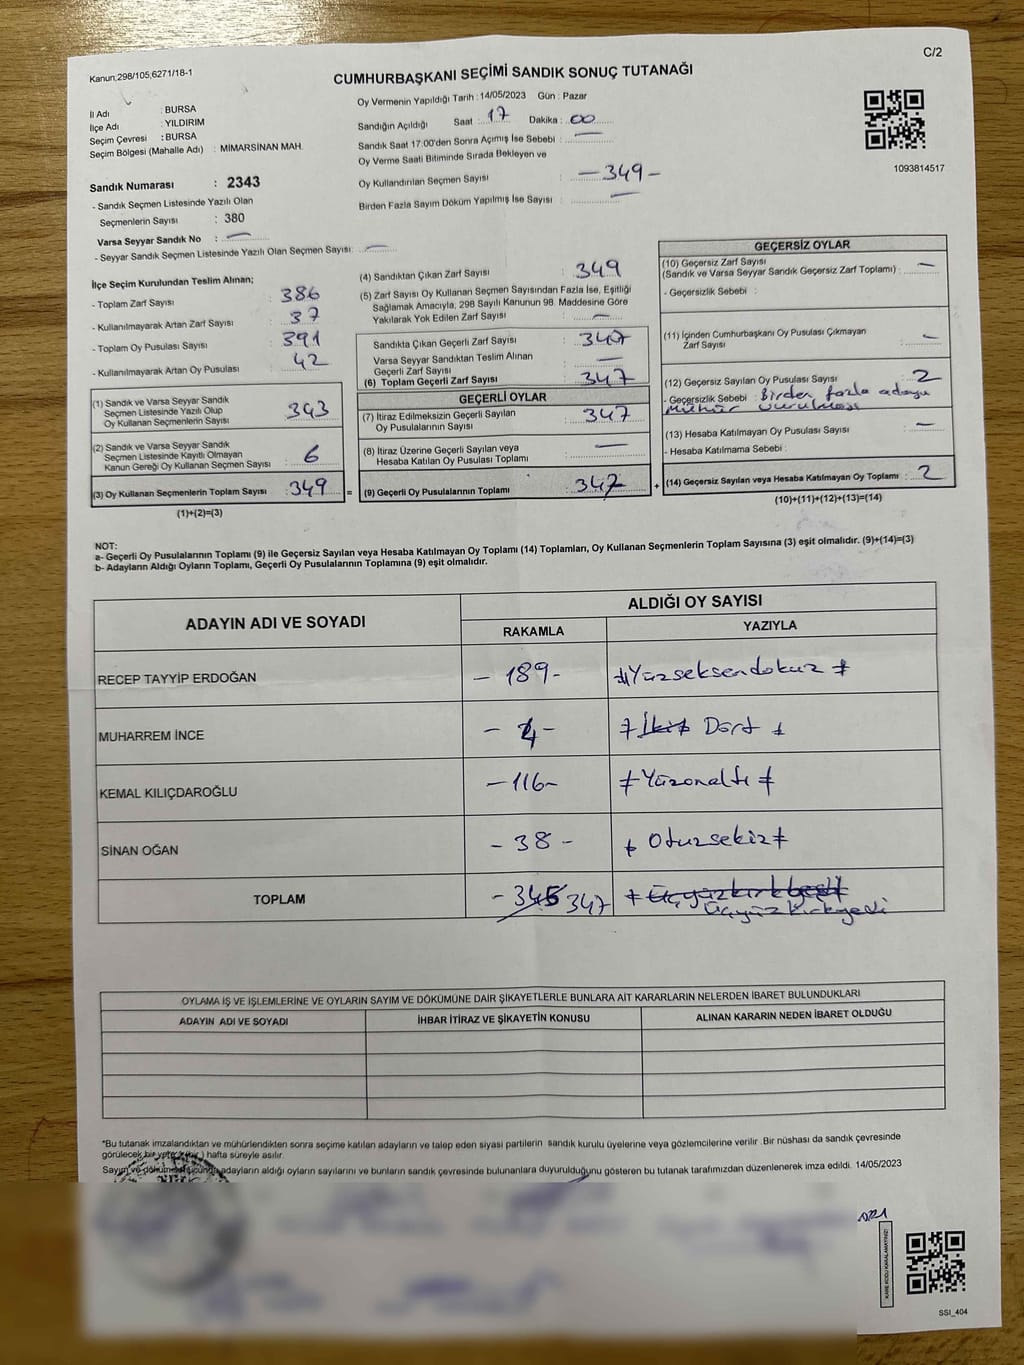 C/2
Kanun;298/105;6271/18-1
CUMHURBAŞKANI SEÇİMİ SANDIK SONUÇ TUTANAĞI
İl Adı : BURSA
İlçe Adı : YILDIRIM
Seçim Çevresi : BURSA
Seçim Bölgesi (Mahalle Adı) : MİMARSİNAN MAH.
Sandık Numarası : 2343
- Sandık Seçmen Listesinde Yazılı Olan
Seçmenlerin Sayısı : 380
Varsa Seyyar Sandık No : —
- Seyyar Sandık Seçmen Listesinde Yazılı Olan Seçmen Sayısı: —
Oy Vermenin Yapıldığı Tarih : 14/05/2023 Gün : Pazar
Sandığın Açıldığı Saat : 17 Dakika : 00
Sandık Saat 17:00'den Sonra Açımış İse Sebebi : —
Oy Verme Saati Bitiminde Sırada Bekleyen ve
Oy Kullandırılan Seçmen Sayısı : — 349 —
Birden Fazla Sayım Döküm Yapılmış İse Sayısı : —
1093814517
İlçe Seçim Kurulundan Teslim Alınan;
- Toplam Zarf Sayısı : 386
- Kullanılmayarak Artan Zarf Sayısı : 37
- Toplam Oy Pusulası Sayısı : 391
- Kullanılmayarak Artan Oy Pusulası : 42
(1) Sandık ve Varsa Seyyar Sandık
Seçmen Listesinde Yazılı Olup
Oy Kullanan Seçmenlerin Sayısı : 343
(2) Sandık ve Varsa Seyyar Sandık
Seçmen Listesinde Kayıtlı Olmayan
Kanun Gereği Oy Kullanan Seçmen Sayısı : 6
(3) Oy Kullanan Seçmenlerin Toplam Sayısı : 349 =
(1)+(2)=(3)
(4) Sandıktan Çıkan Zarf Sayısı : 349
(5) Zarf Sayısı Oy Kullanan Seçmen Sayısından Fazla İse, Eşitliği
Sağlamak Amacıyla, 298 Sayılı Kanunun 98. Maddesine Göre
Yakılarak Yok Edilen Zarf Sayısı : —
Sandıkta Çıkan Geçerli Zarf Sayısı : 347
Varsa Seyyar Sandıktan Teslim Alınan
Geçerli Zarf Sayısı : —
(6) Toplam Geçerli Zarf Sayısı : 347
GEÇERLİ OYLAR
(7) İtiraz Edilmeksizin Geçerli Sayılan
Oy Pusulalarının Sayısı : 347
(8) İtiraz Üzerine Geçerli Sayılan veya
Hesaba Katılan Oy Pusulası Toplamı : —
(9) Geçerli Oy Pusulalarının Toplamı : 347 +
GEÇERSİZ OYLAR
(10) Geçersiz Zarf Sayısı
(Sandık ve Varsa Seyyar Sandık Geçersiz Zarf Toplamı) : —
- Geçersizlik Sebebi :
(11) İçinden Cumhurbaşkanı Oy Pusulası Çıkmayan
Zarf Sayısı : —
(12) Geçersiz Sayılan Oy Pusulası Sayısı : 2
- Geçersizlik Sebebi : Birden fazla adaya
mühür vurulması
(13) Hesaba Katılmayan Oy Pusulası Sayısı : —
- Hesaba Katılmama Sebebi :
(14) Geçersiz Sayılan veya Hesaba Katılmayan Oy Toplamı : 2
(10)+(11)+(12)+(13)=(14)
NOT:
a- Geçerli Oy Pusulalarının Toplamı (9) ile Geçersiz Sayılan veya Hesaba Katılmayan Oy Toplamı (14) Toplamları, Oy Kullanan Seçmenlerin Toplam Sayısına (3) eşit olmalıdır. (9)+(14)=(3)
b- Adayların Aldığı Oyların Toplamı, Geçerli Oy Pusulalarının Toplamına (9) eşit olmalıdır.
ADAYIN ADI VE SOYADI
ALDIĞI OY SAYISI
RAKAMLA YAZIYLA
RECEP TAYYİP ERDOĞAN - 189 - Yüzseksendokuz
MUHARREM İNCE - 4 - İki Dört
KEMAL KILIÇDAROĞLU - 116 - Yüzonaltı
SİNAN OĞAN - 38 - Otuzsekiz
TOPLAM - 345 347 Üçyüzkırkbeş
Üçyüzkırkyedi
OYLAMA İŞ VE İŞLEMLERİNE VE OYLARIN SAYIM VE DÖKÜMÜNE DAİR ŞİKAYETLERLE BUNLARA AİT KARARLARIN NELERDEN İBARET BULUNDUKLARI
ADAYIN ADI VE SOYADI İHBAR İTİRAZ VE ŞİKAYETİN KONUSU ALINAN KARARIN NEDEN İBARET OLDUĞU
*Bu tutanak imzalandıktan ve mühürlendikten sonra seçime katılan adayların ve talep eden siyasi partilerin sandık kurulu üyelerine veya gözlemcilerine verilir .Bir nüshası da sandık çevresinde
görülecek bir yere (bir) hafta süreyle asılır.
Sayım ve döküm sonucunda adayların aldığı oyların sayılarını ve bunların sandık çevresinde bulunanlara duyurulduğunu gösteren bu tutanak tarafımızdan düzenlenerek imza edildi. 14/05/2023
KARE KODU KARALAMAYINIZ!
SSI_404